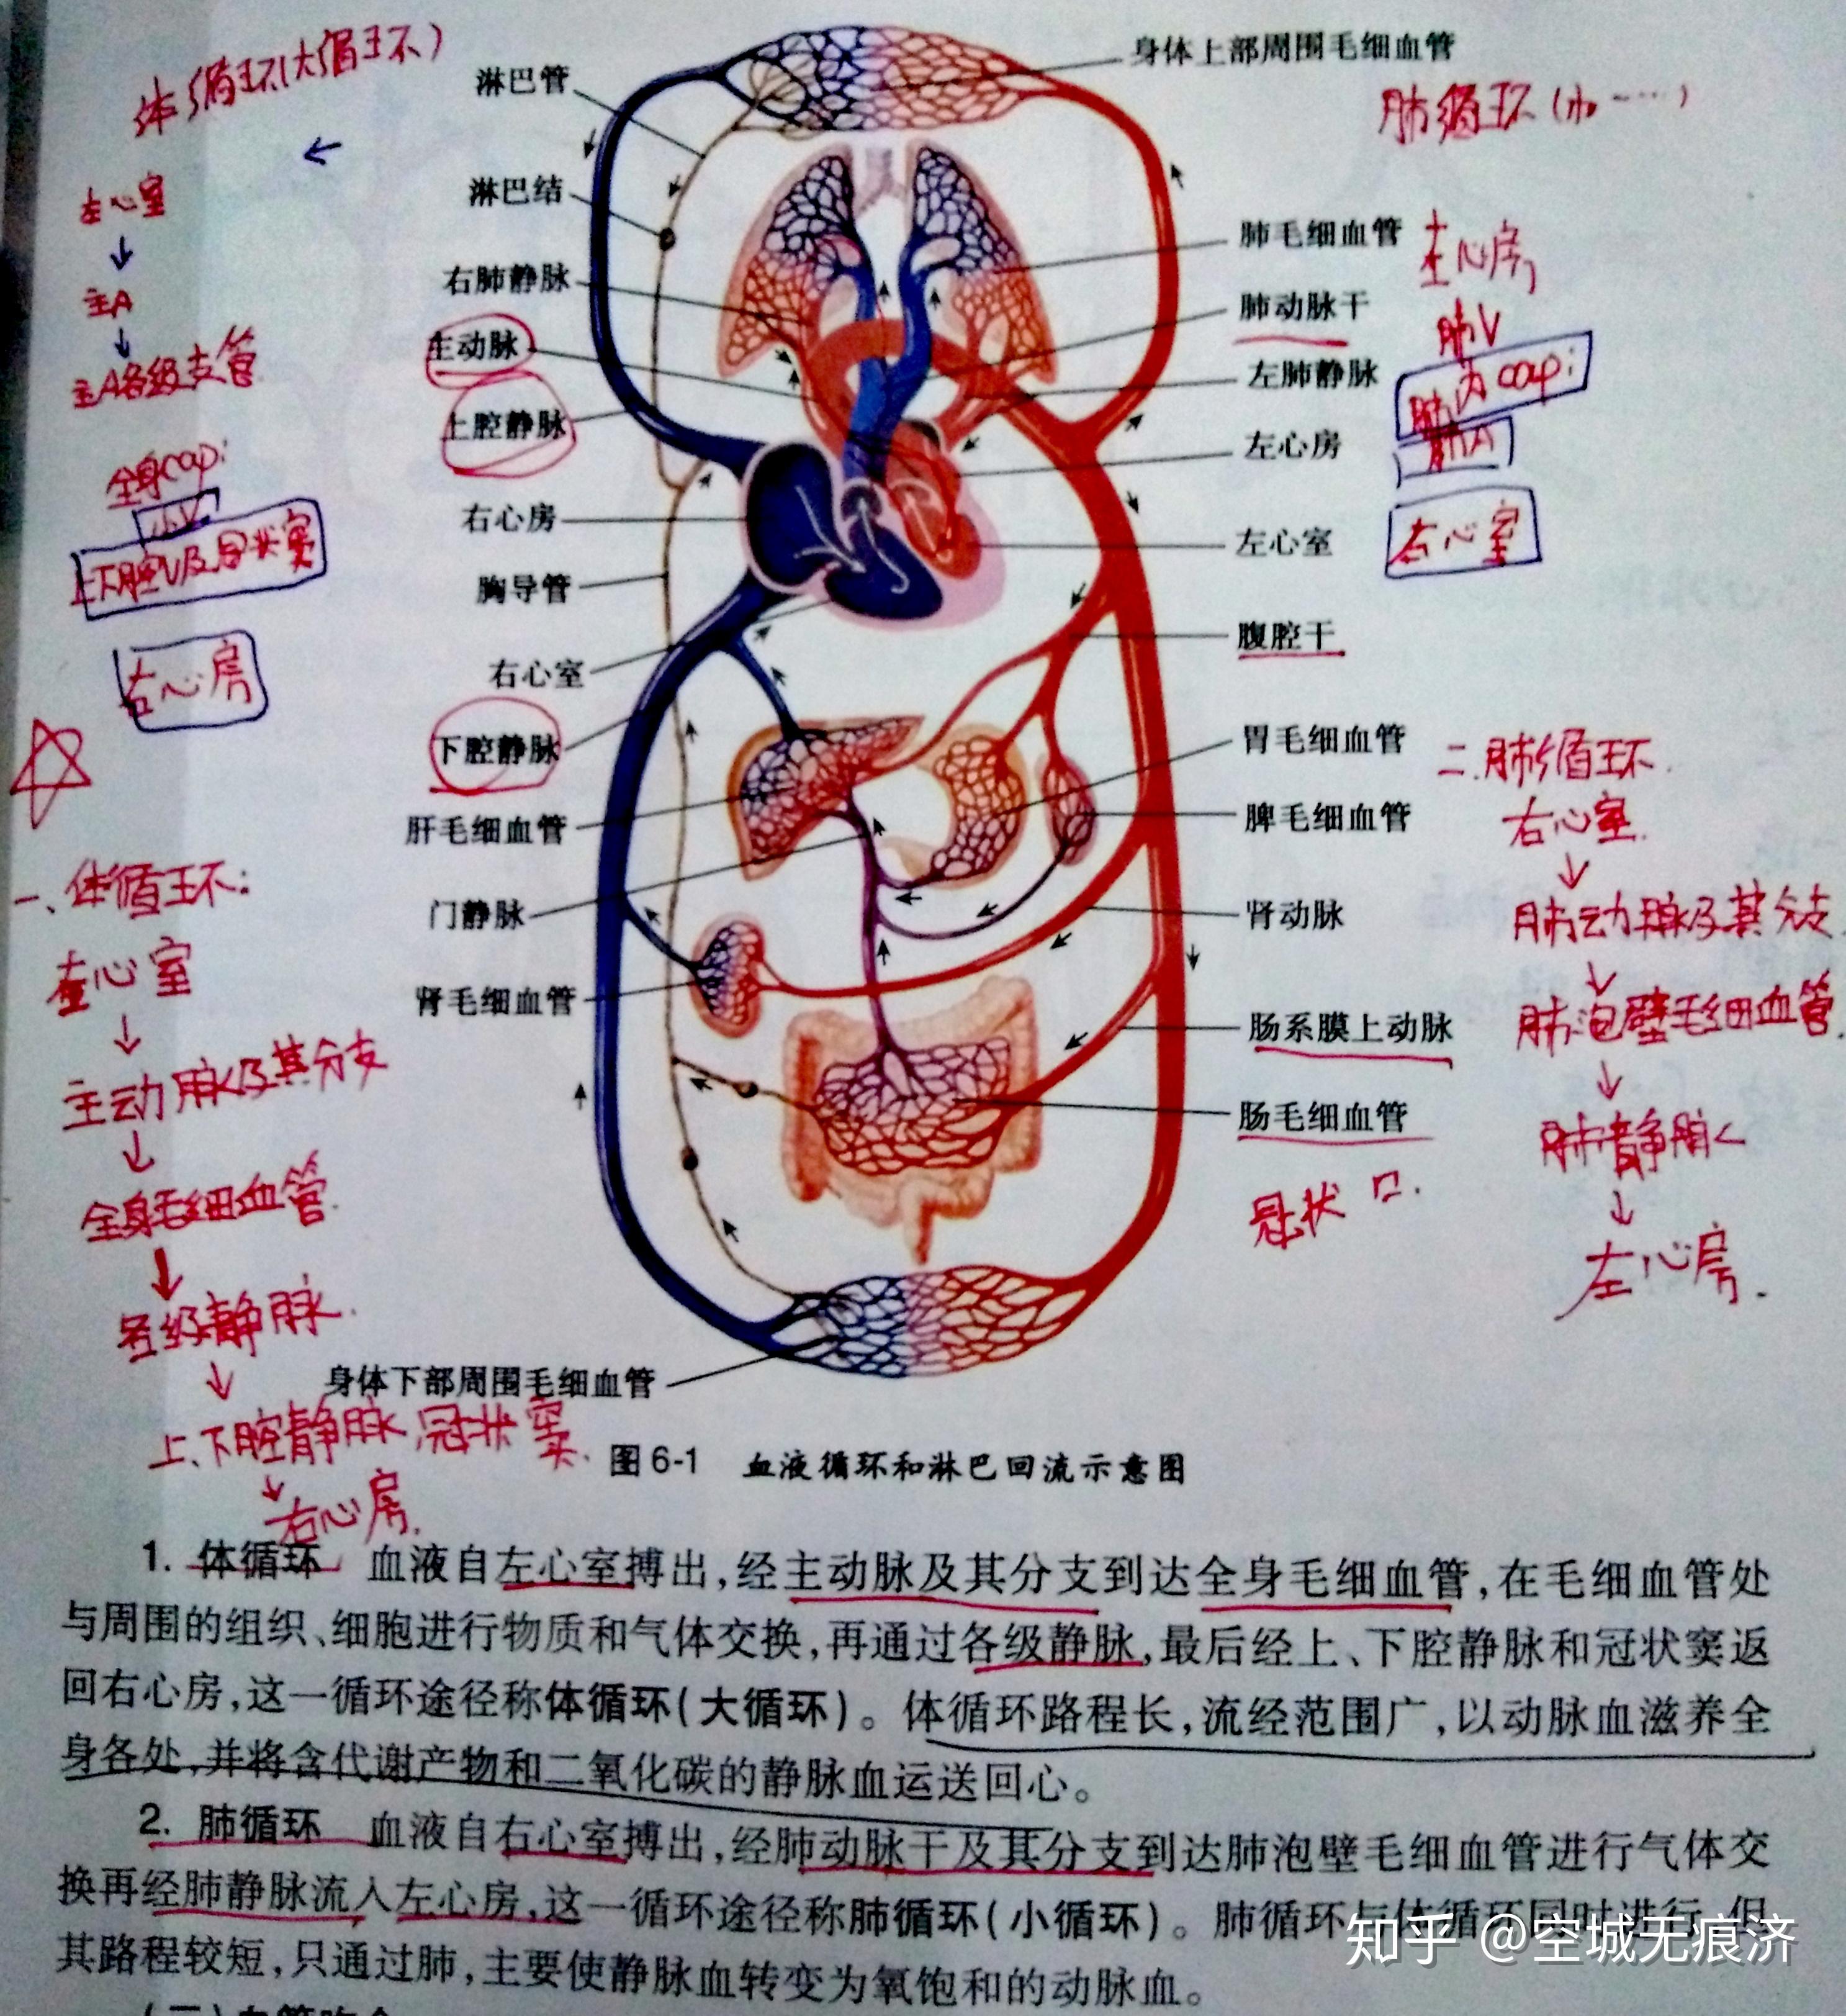 体循环(大循环)
左心室
↓
主A
↓
主A各级支管
全身cap:
小V
上下腔V及冠状窦
右心房
淋巴管
淋巴结
右肺静脉
主动脉
上腔静脉
右心房
胸导管
右心室
下腔静脉
肝毛细血管
门静脉
肾毛细血管
身体下部周围毛细血管
身体上部周围毛细血管
肺毛细血管
肺动脉干
左肺静脉
左心房
左心室
腹腔干
胃毛细血管
脾毛细血管
肾动脉
肠系膜上动脉
肠毛细血管
肺循环(小……)
左心房
肺V
肺内cap:
肺A
右心室
冠状口.
一、体循环:
左心室
↓
主动脉及其分支
↓
全身毛细血管.
↓
各级静脉.
↓
上、下腔静脉、冠状窦.
↓
右心房.
二.肺循环.
右心室.
↓
肺动脉及其分支.
↓
肺泡壁毛细血管.
↓
肺静脉
↓
左心房.
图6-1 血液循环和淋巴回流示意图
1. 体循环 血液自左心室搏出,经主动脉及其分支到达全身毛细血管,在毛细血管处
与周围的组织、细胞进行物质和气体交换,再通过各级静脉,最后经上、下腔静脉和冠状窦返
回右心房,这一循环途径称体循环(大循环)。体循环路程长,流经范围广,以动脉血滋养全
身各处,并将含代谢产物和二氧化碳的静脉血运送回心。
2. 肺循环 血液自右心室搏出,经肺动脉干及其分支到达肺泡壁毛细血管进行气体交
换再经肺静脉流入左心房,这一循环途径称肺循环(小循环)。肺循环与体循环同时进行,但
其路程较短,只通过肺,主要使静脉血转变为氧饱和的动脉血。
知乎 @空城无痕济